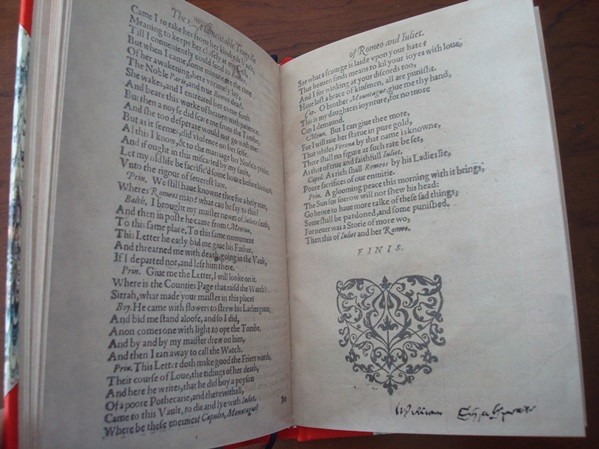 The most lamentable Tragedie
Came I to take her from her kindreds Vault,
Meaning to keepe her closely at my Cell,
Till I conueniently could send to Romeo.
But when I came, some minute ere the time
Of her awakening, here vntimely lay,
The Noble Paris, and true Romeo dead.
She wakes, and I entreated her come forth
And beare this worke of heauen with patience.
But then a noyse did scare me from the Tombe,
And she too desperate would not go with me:
But as it seemes, did violence on her selfe.
All this I know, & to the marriage her Nurse is priuie:
And if ought in this miscaried by my fault,
Let my old life be sacrific'd some houre before his time,
Vnto the rigour of seuerest law.
Prin. We still haue knowne thee for a holy man,
Wheres Romeos man? what can he say to this?
Balth. I brought my maister newes of Iuliets death,
And then in poste he came from Mantua,
To this same place, To this same monument
This Letter he early bid me giue his Father,
And threatned me with death, going in the Vault,
If I departed not, and left him there.
Prin. Giue me the Letter, I will looke on it.
Where is the Counties Page that raisd the Watch?
Sirrah, what made your maister in this place?
Boy. He came with flowers to strew his Ladies graue,
And bid me stand aloofe, and so I did,
Anon comes one with light to ope the Tombe,
And by and by my maister drew on him,
And then I ran away to call the Watch.
Prin. This Letter doth make good the Friers words,
Their course of Loue, the tidings of her death,
And here he writes, that he did buy a poyson
Of a poore Pothecarie, and therewithall,
Came to this Vault, to die and lye with Iuliet.
Where be these enemies? Capulet, Mountague?
of Romeo and Iuliet.
See what a scourge is laide vpon your hate?
That heauen finds means to kil your ioyes with loue,
And I for winking at your discords too,
Haue lost a brace of kinsmen, all are punisht.
Cap. O brother Mountague, giue me thy hand,
This is my daughters ioynture, for no more
Can I demaund.
Moun. But I can giue thee more,
For I will raie her statue in pure gold,
That whiles Verona by that name is knowne,
There shall no figure at such rate be set,
As that of true and faithfull Iuliet.
Capel. As rich shall Romeos by his Ladies lie,
Poore sacrifices of our enmitie.
Prin. A glooming peace this morning with it brings,
The Sun for sorrow will not shew his head:
Go hence to haue more talke of these sad things,
Some shall be pardoned, and some punished.
For neuer was a Storie of more wo,
Then this of Iuliet and her Romeo.
FINIS.
William Shakspeare